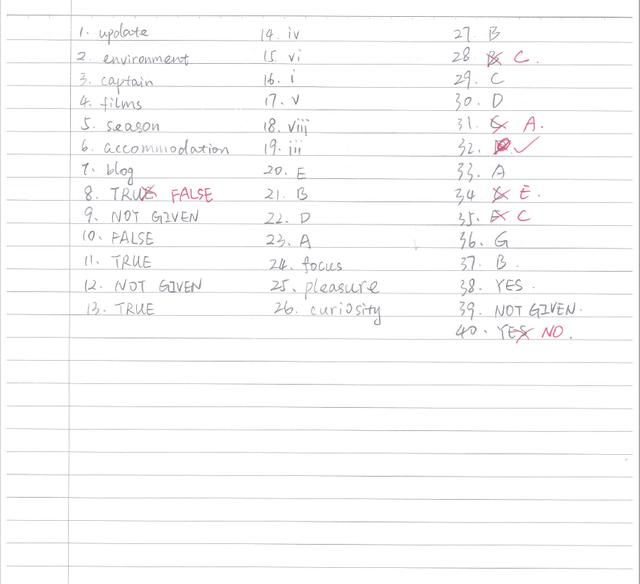 1. update
2. environment
3. captain
4. films
5. season
6. accommodation
7. blog
8. TRUE FALSE
9. NOT GIVEN
10. FALSE
11. TRUE
12. NOT GIVEN
13. TRUE
14. iv
15. vi
16. i
17. v
18. viii
19. iii
20. E
21. B
22. D
23. A
24. focus
25. pleasure
26. curiosity
27. B
28 C.
29. C
30. D
31. A.
32. ✓
33. A
34 E.
35. C
36. G
37. B.
38. YES.
39. NOT GIVEN.
40. YES NO.